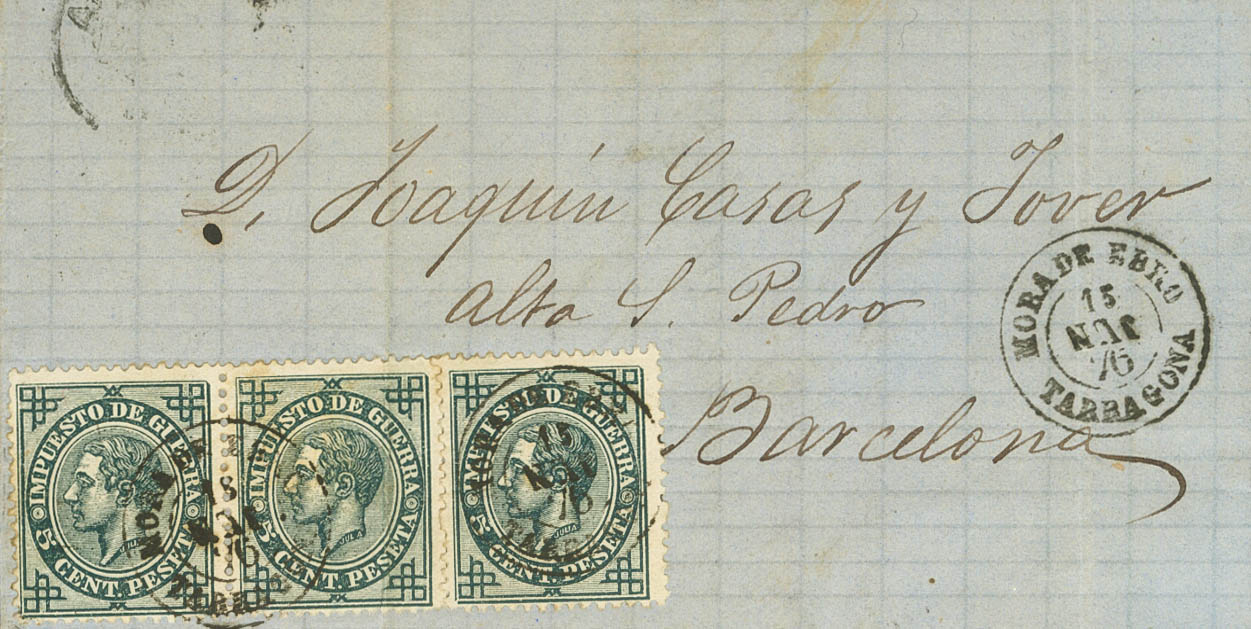 D. Joaquín Casas y Jover
Alta S. Pedro
Barcelona
MORA DE EBRO
15
NOV
76
TARRAGONA
IMPUESTO DE GUERRA
5 CENT PESETA
IMPUESTO DE GUERRA
5 CENT PESETA
JULIA
IMPUESTO DE GUERRA
5 CENT PESETA
JULIA
MORA
15
NOV
76
15
76